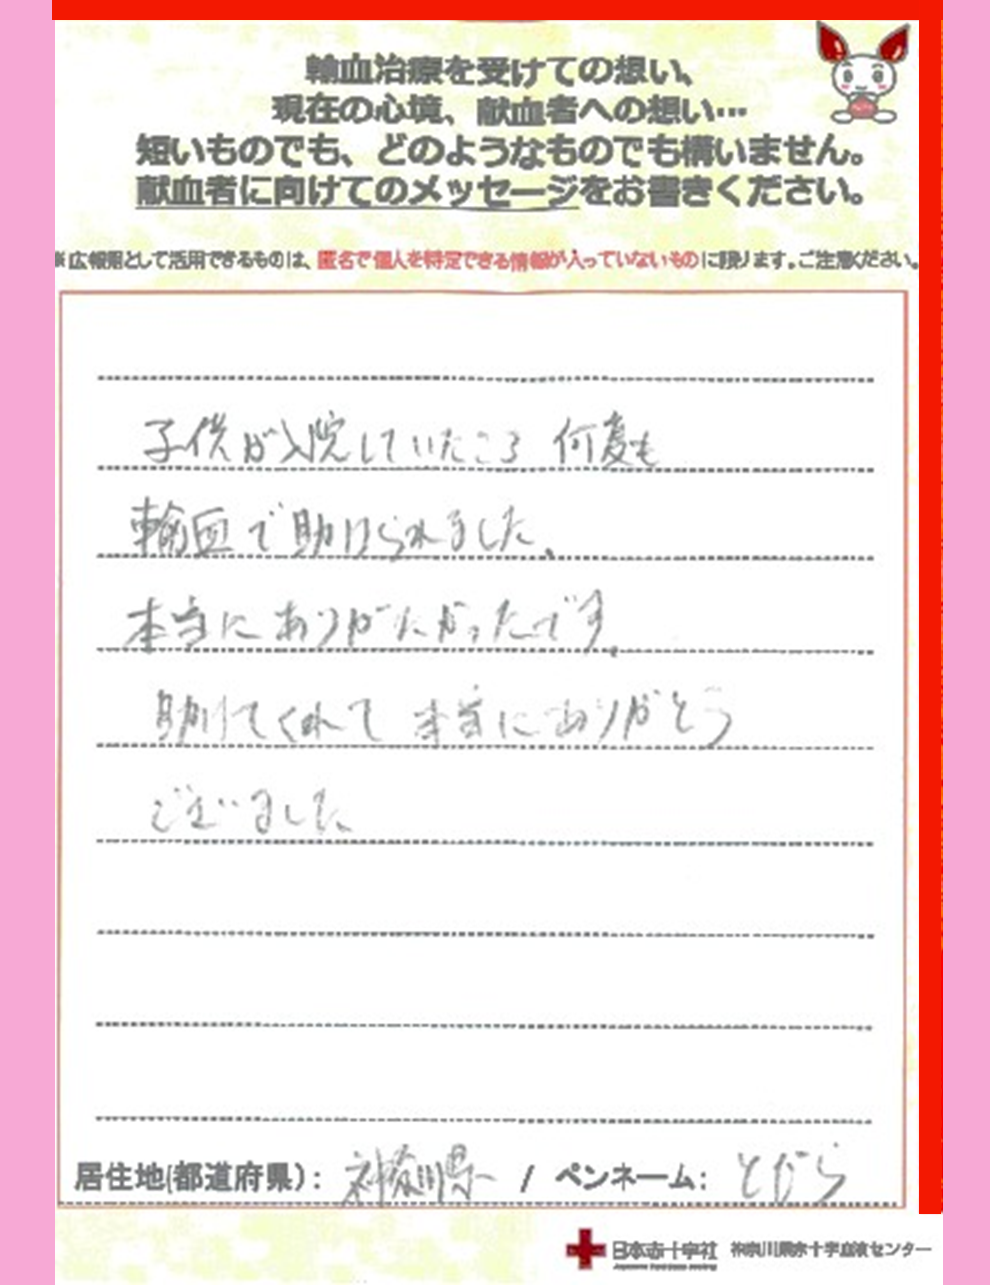 輸血治療を受けての想い、
現在の心境、献血者への想い…
短いものでも、どのようなものでも構いません。
献血者に向けてのメッセージをお書きください。
※広報用として活用できるものは、匿名で個人を特定できる情報が入っていないものに限ります。ご注意ください。
子供が入院していたころ 何度も
輸血で助けられました。
本当にありがたかったです。
助けてくれて 本当にありがとう
ございました
居住地(都道府県): 神奈川県 / ペンネーム:
日本赤十字社 神奈川県赤十字血液センター